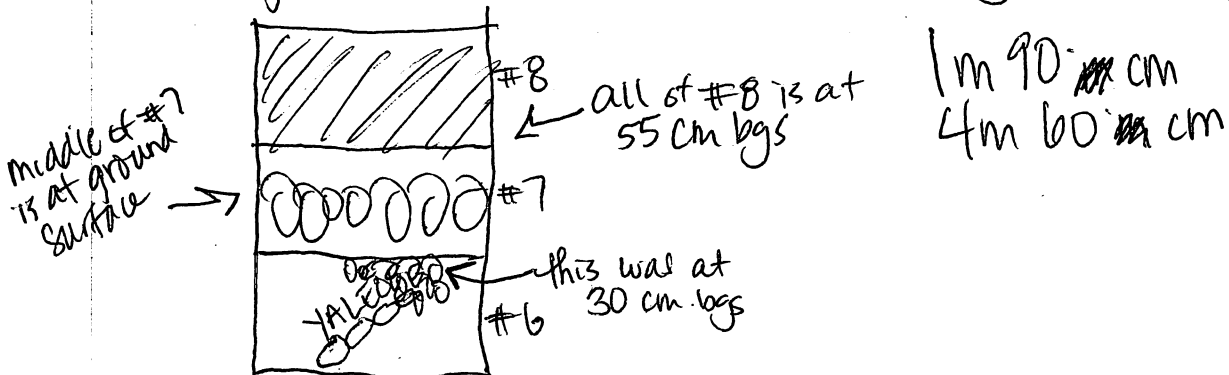 #8
all of #8 is at
55 cm bgs
1m 90 cm
4m 60 cm
middle of #7
is at ground
surface
#7
this was at
30 cm bgs
YALE
#6